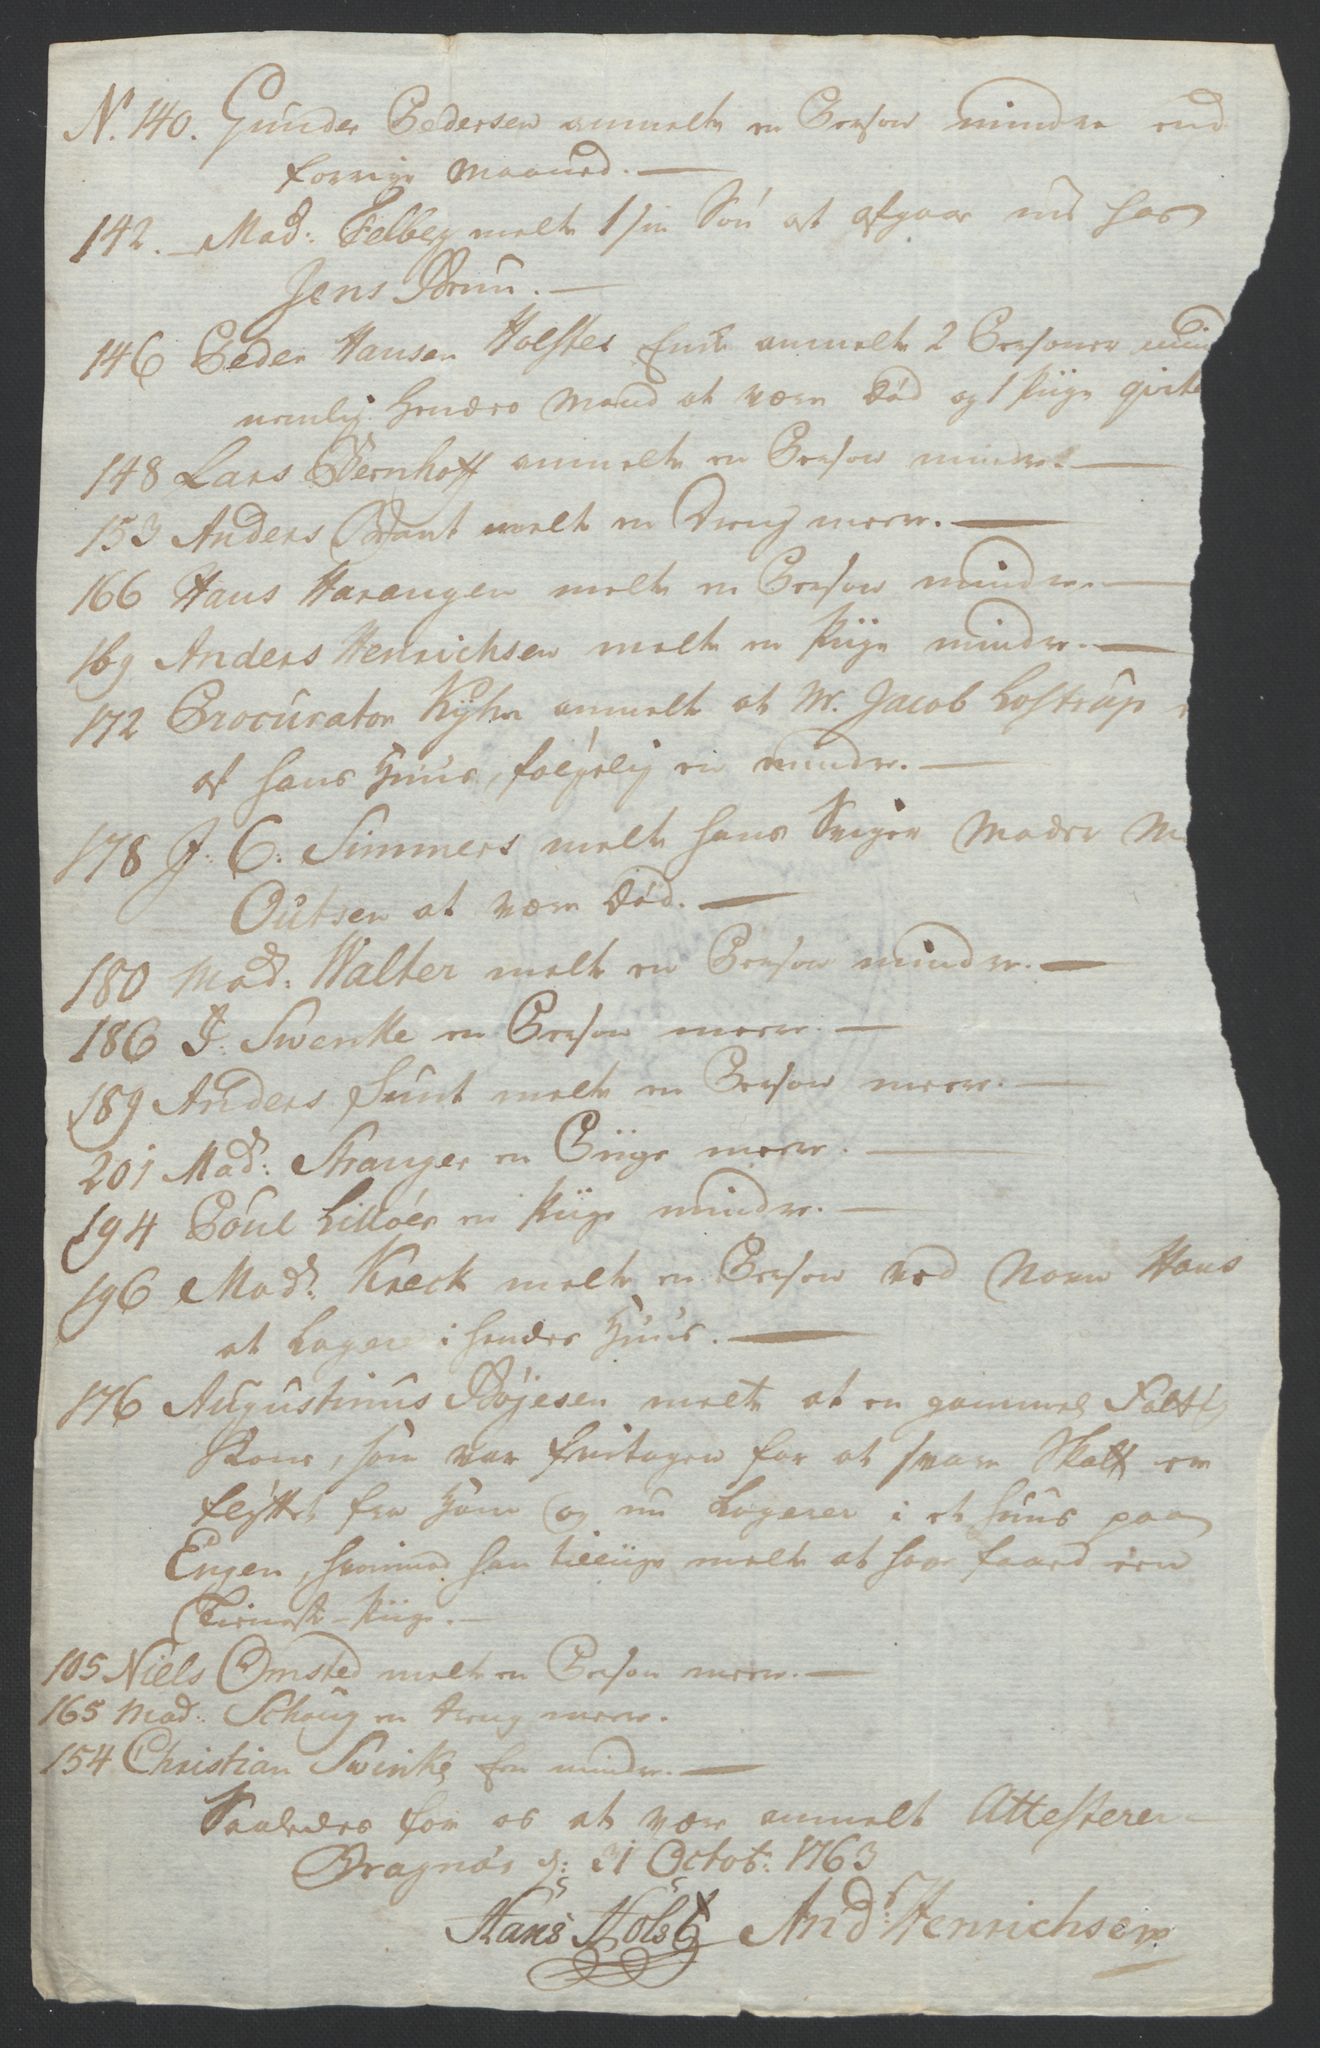 N. 140. Gunder Pedersen anmelte en Person mindre end
forrige Maaned.
142. Mad: Felberg melte 1 sin Søn at afgaar nu hos
Jens Brun.
146 Peder Hansen Holstes Enke anmelte 2 Personer min
nemlig hendes Mand at være død og 1 Piige givt
148 Lars Bernhoff anmelte en Person mindre.
153 Anders Brant melte en Dreng meere.
166 Hans Harangen melte en Person mindre.
169 Anders Henrichsen melte en Piige mindre.
172 Procurator Kyhn anmelte at Mr. Jacob Lostrup
af hans Huus, følgelig en mindre.
178 J: C: Simmers melte hans Sviger Moder M
Outsen at være død.
180 Mad: Walter melte en Person mindre.
186 J: Swenke en Person meere.
189 Anders Sunt melte en Person meere.
201 Mad: Stranger en Piige meere.
194 Poul Lilløer en Piige mindre.
196 Mad: Kreck melte en Person ved Navn Hans
at Logere i hendes Huus.
176 Augustinus Bøjesen melte at en gammel Fattig
Kone, som var fritagen for at svare Skatt er
flyttet fra ham og nu Logerer i et huus paa
Engen, hvorimod han tillige melte at have faaed een
Tieneste-Piige.
105 Niels Omsted melte en Person meere.
165 Mad: Schoug en dreng meere.
154 Christian Swenke een mindre.
Saaledes for os at være anmelt Attesterer
Bragnæs d: 31 Octob: 1763
Hans Holst And: Henrichsen